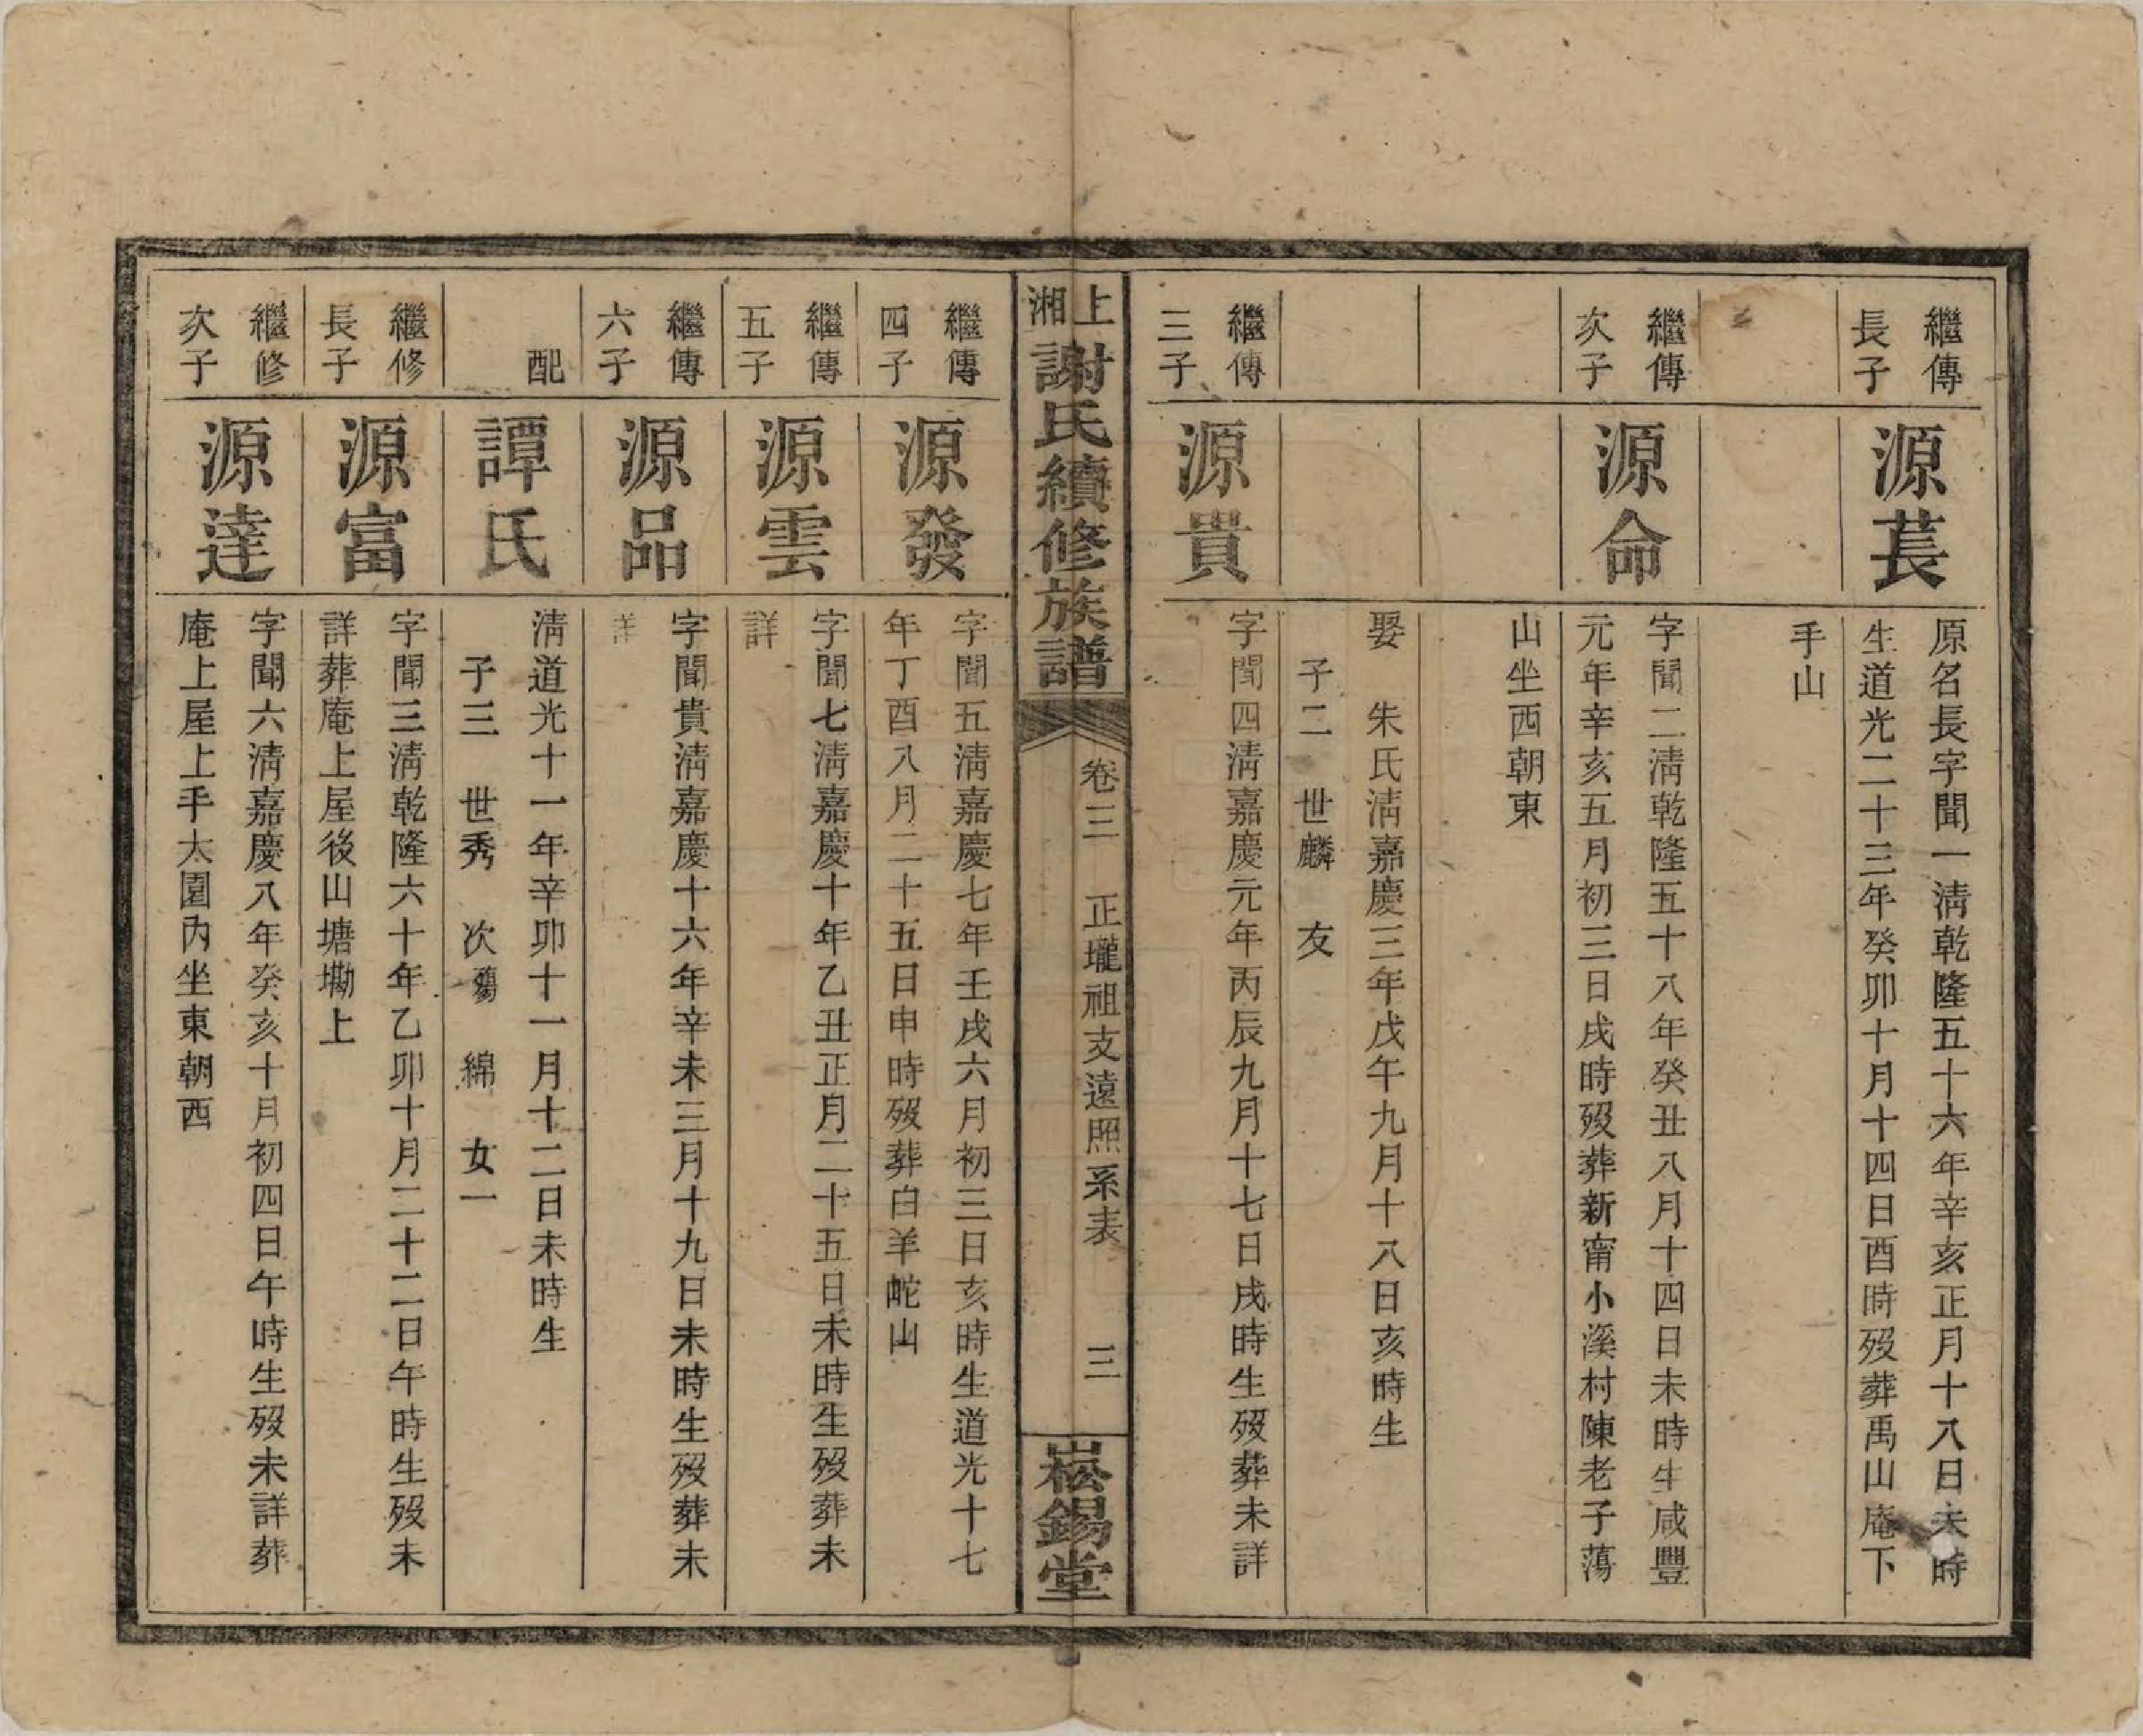 繼傳
長子
源萇
原名長字聞一淸乾隆五十六年辛亥正月十八日未時
生道光二十三年癸卯十月十四日酉時歿葬禹山庵下
手山
繼傳
次子
源命
字聞二淸乾隆五十八年癸丑八月十四日未時生咸豐
元年辛亥五月初三日戌時歿葬新甯小溪村陳老子蕩
山坐西朝東
娶　朱氏淸嘉慶三年戊午九月十八日亥時生
子二　世麟　友
繼傳
三子
源貴
字聞四淸嘉慶元年丙辰九月十七日戌時生歿葬未詳
上湘
謝氏續修族譜
卷三　正壠祖支遠照系表　三
崧錫堂
繼傳
四子
源發
字聞五淸嘉慶七年壬戌六月初三日亥時生道光十七
年丁酉八月二十五日申時歿葬白羊𡶇山
繼傳
五子
源雲
字聞七淸嘉慶十年乙丑正月二十五日未時生歿葬未
詳
繼傳
六子
源品
字聞貴淸嘉慶十六年辛未三月十九日未時生歿葬未
詳
配
譚氏
淸道光十一年辛卯十一月十二日未時生
子三　世秀　次殤　綿　女一
繼修
長子
源富
字聞三淸乾隆六十年乙卯十月二十二日午時生歿未
詳葬庵上屋後山塘墈上
繼修
次子
源達
字聞六淸嘉慶八年癸亥十月初四日午時生歿未詳葬
庵上屋上手大園內坐東朝西